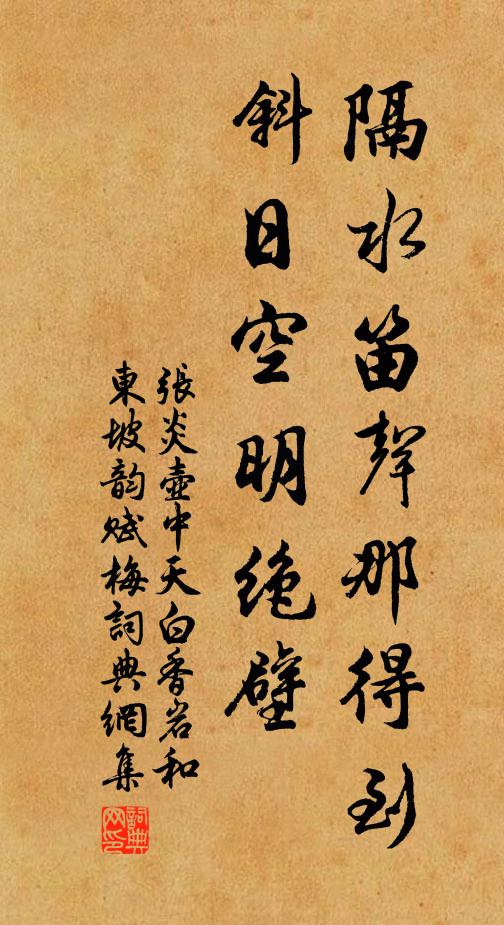 隔水笛聲那得到
斜日空明絶壁
張炎壺中天白香岩和
東坡韵賦梅詞典網集
詞典
网印